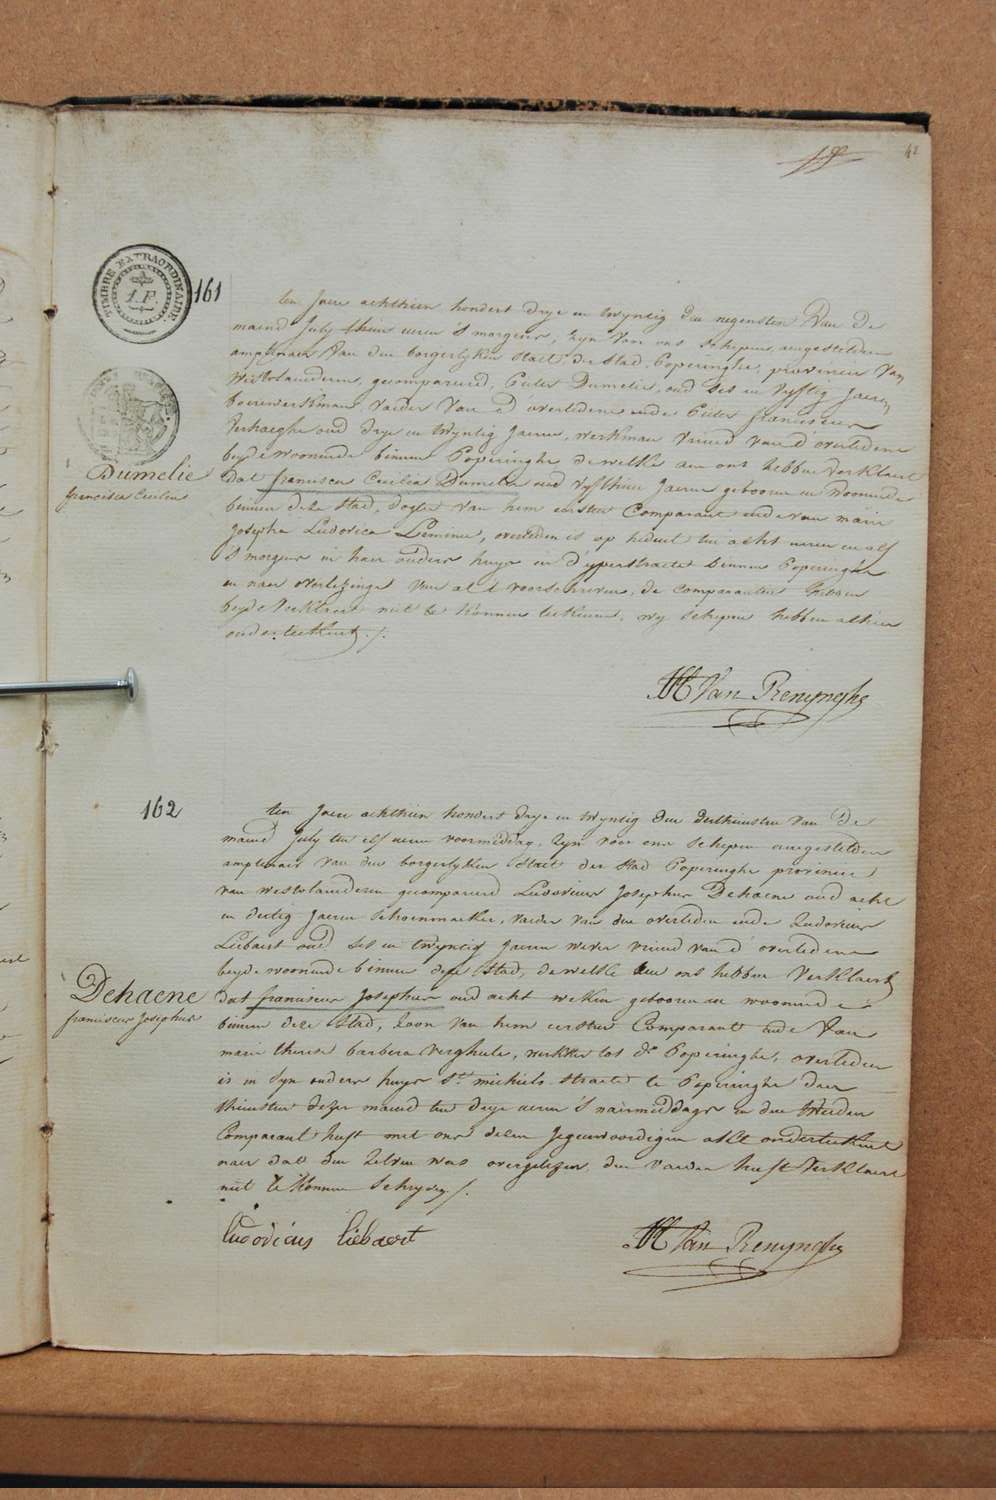 42
TIMBRE EXTRAORDINAIRE
1 F.
161
ten Jaere achthien hondert drye en twyntig den negensten Van de
maend July thien uren 's morgens, zyn voor ons schepen, aengestelden
amptenaer Van den borgerlyken staet, der Stad, Poperinghe, provincie Van
Westvlaenderen, gecompareerd, Pieter Dumelie, oud ses en vyftig Jaeren
boerewerkman, vaeder Van d'overledene ende Pieter franciscus
Verhaeghe oud drye en twyntig Jaeren, werkman vriend van d'overledene
beyde woonende binnen Poperinghe dewelke aen ons hebben verklaert
Dumelie
francisca Cecilia
dat francisca Cecilia Dumelie oud vyfthien Jaeren geboren en woonende
binnen deze stad, dogter van hem eersten Comparant ende van marie
Josepha Ludovica Leminne, overleden is op heden ten acht uren en alf
's morgens in haer ouders huys in d'yperstraete binnen Poperinghe
en naer overlezinge van akt voorschreven, de comparanten hebben
beyde verklaert niet te konnen teekenen, wy schepen hebben alhier
onderteekent ./.
M Van Renynghe
162
ten Jaere achthien hondert drye en twyntig den derthiensten van de
maend July ten elf uren voormiddag, zyn voor ons schepen aengestelden
amptenaer van den borgerlyken staet der stad Poperinghe provincie
van westvlaenderen gecompareerd Ludovicus Josephus Dehaene oud acht
en dertig Jaeren schoenmaeker, vaeder van den overleden ende Ludovicus
Liebaert oud ses en twyntig Jaeren wever vriend van d'overledene
beyde woonende binnen deze stad, dewelke aen ons hebben verklaert
Dehaene
franciscus Josephus
dat franciscus Josephus oud acht weken geboren en woonende
binnen deze stad, zoon van hem eersten Comparant ende Van
marie therese barbera verghule, werkster tot d.° Poperinghe, overleden
is in syn ouders huys S.t michiels straete te Poperinghe den
thiensten dezer maend ten drye uren 's naermiddags en den tweeden
Comparant heeft met ons dezen Jegenwoordigen akt onderteekent
naer dat den zelven was overgelezen, den vaeder heeft verklaert
niet te konnen schryven ./.
Ludovicus Liebaert
M Van Renynghe